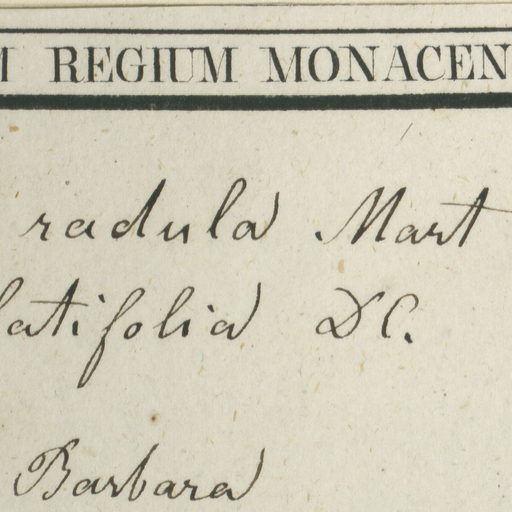 M REGIUM MONACEN
radula Mart
latifolia DC.
Barbara